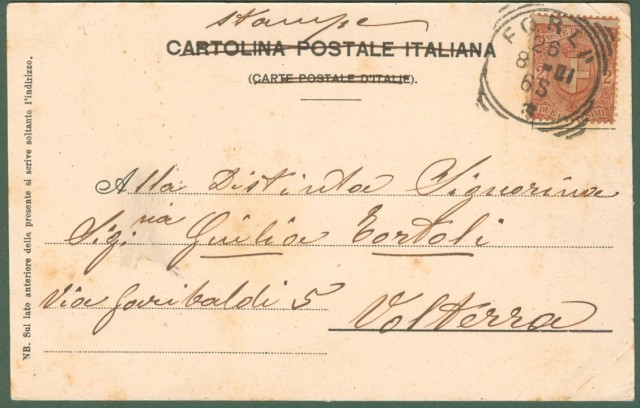 stampe
CARTOLINA POSTALE ITALIANA
(CARTE POSTALE D'ITALIE).
FORLI
26
8-01
6S
2 2
DUE
Alla Distinta Signorina
Sig.na Giulia Tortoli
Via Garibaldi 5
Volterra
NB. Sul lato anteriore della presente si scrive soltanto l'indirizzo.